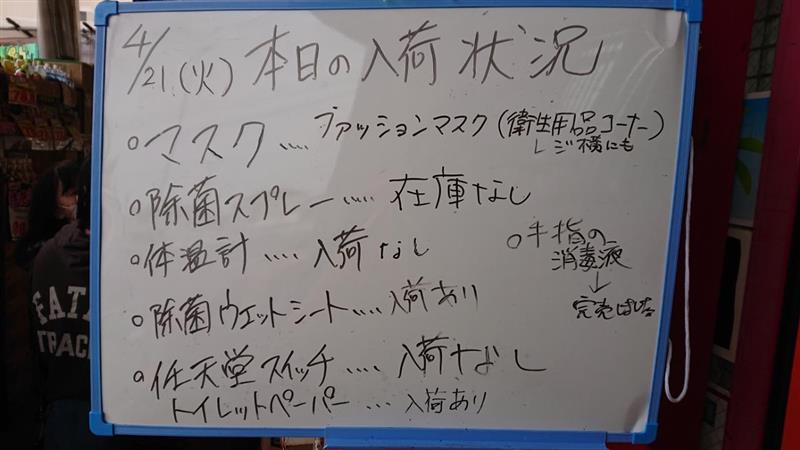 4/21(火) 本日の入荷状況
○マスク.... ファッションマスク(衛生用品コーナー)
レジ横にも
○除菌スプレー..... 在庫なし
○体温計.... 入荷なし
○手指の
消毒液
↓
完売しました
○除菌ウェットシート....入荷あり
○任天堂スイッチ.... 入荷なし
トイレットペーパー.... 入荷あり
FATA
TRACK